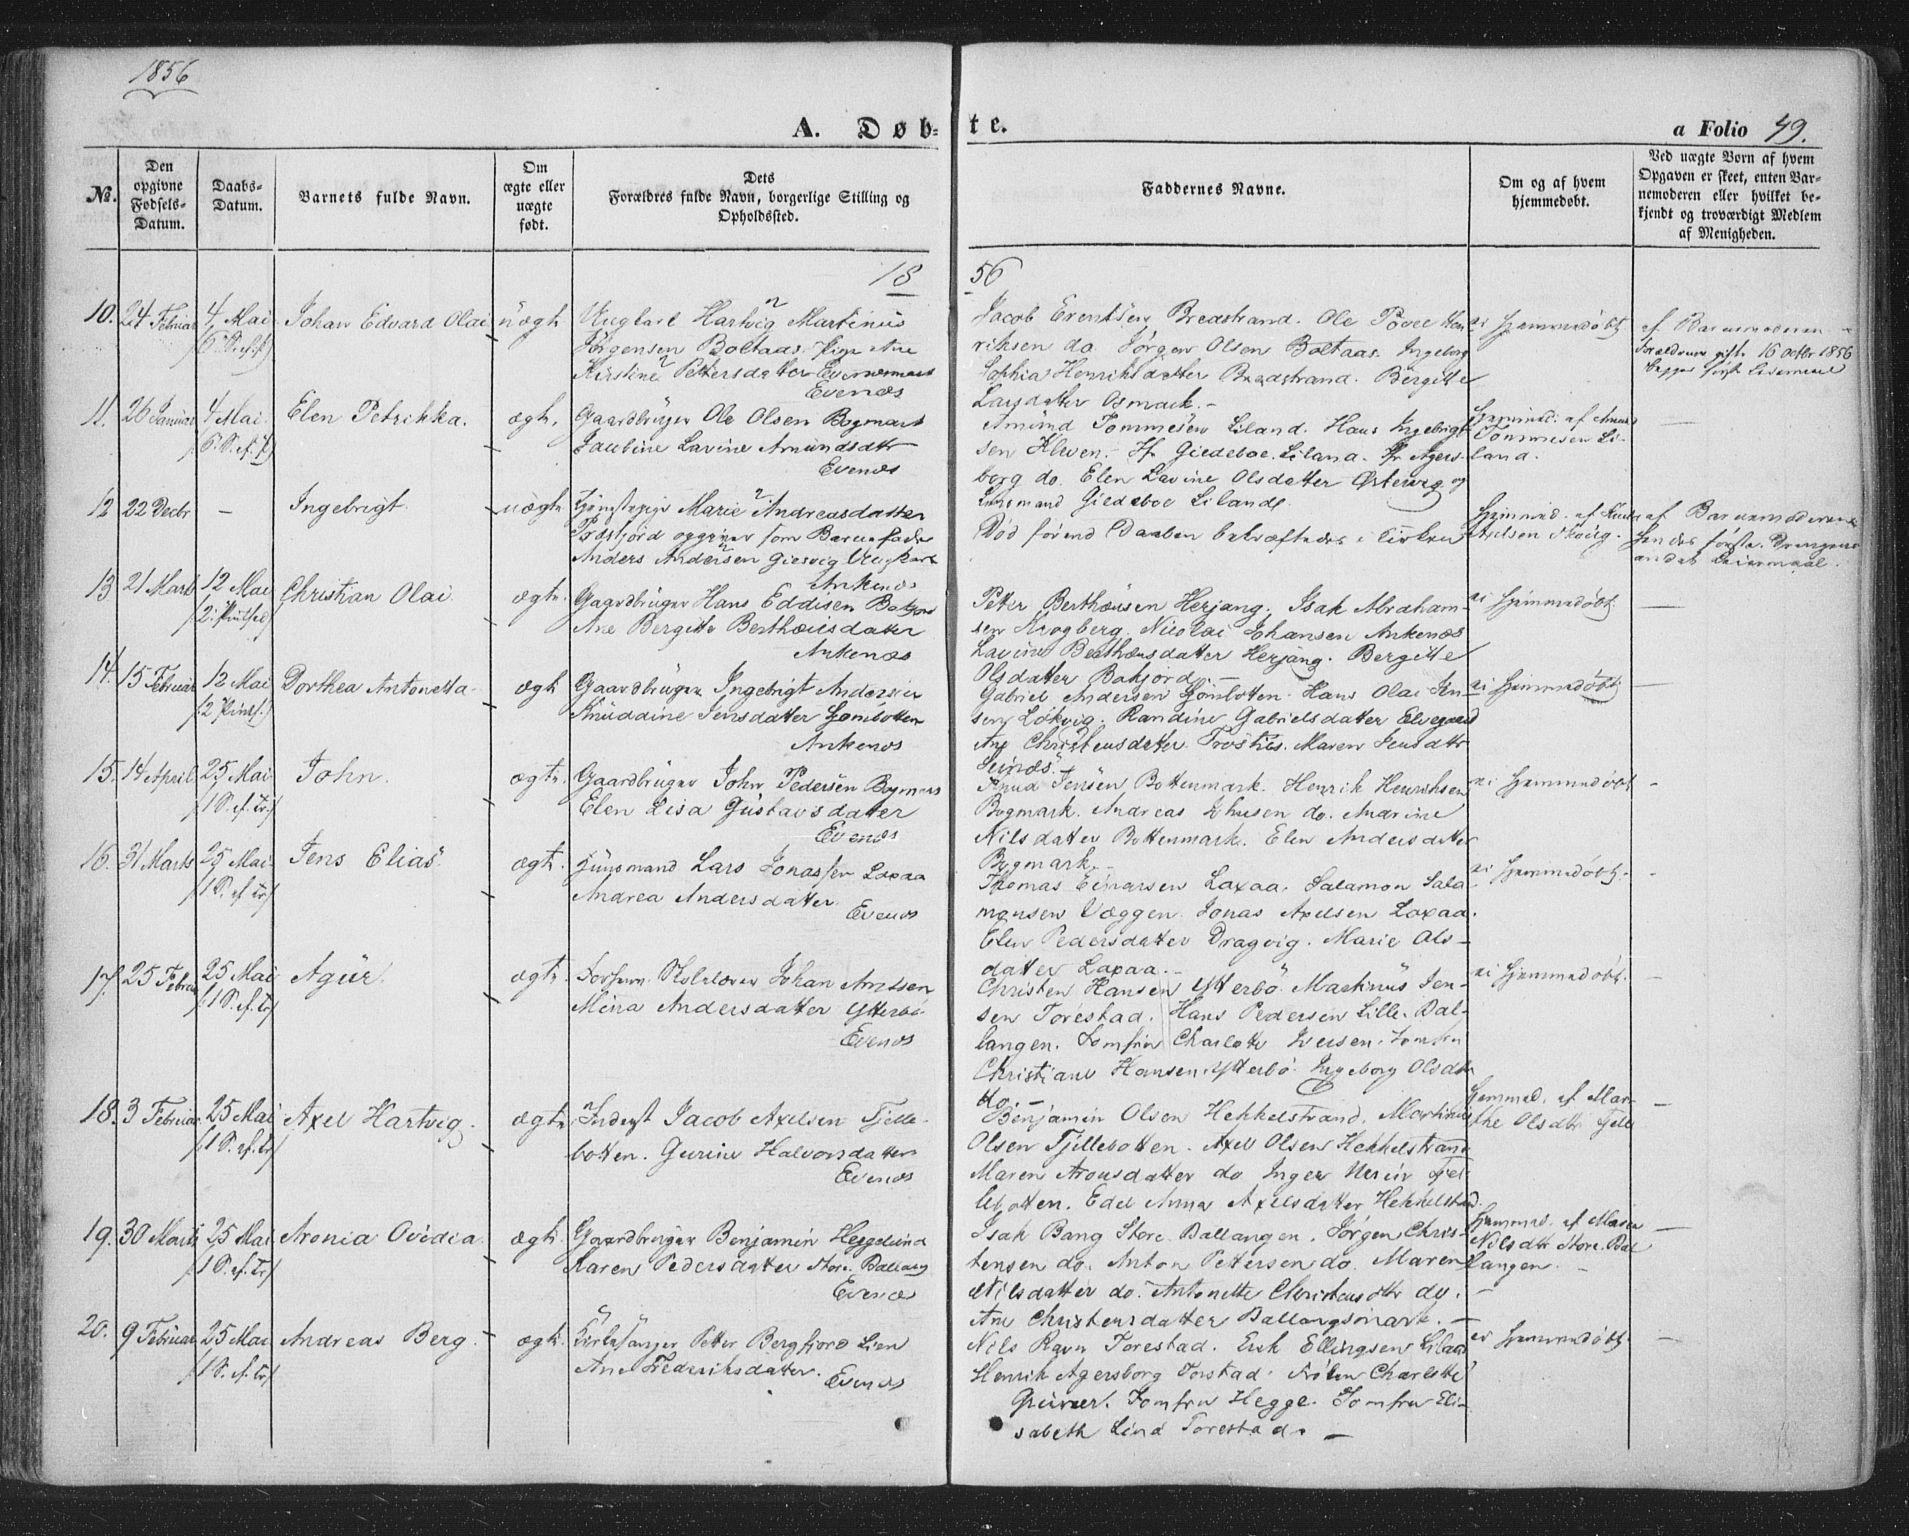 1856
A. Døb-
te.
a Folio 49.
No.
Den opgivne Fødsels-Datum.
Daabs-Datum.
Barnets fulde Navn.
Om ægte eller uægte født.
Dets Forældres fulde Navn, borgerlige Stilling og Opholdssted.
Faddernes Navne.
Om og af hvem hjemmedøbt.
Ved uægte Born af hvem Opgaven er skeet, enten Bar-nemoderen eller hvilket be-kjendt og troværdigt Medlem af Menigheden.
18
56
10. 24 Februar 4 Mai Johan Edvard Olai uægt
Ungkarl Hartvig Martinus
Jørgensen Boltaas. Pige Ane
Kirstine Pettersdatter Evenesmark
Evenæs
Jacob Erentsen Bredstrand. Ole Povel Hen-
riksen do Jørgen Olsen Boltaas. Ingeborg
Sophia Henriksdatter Bredstrand. Bergitte
Larsdatter Osmark.
ei hjemmedøbt
af Barnemoderen
Forældrene gift 16 octbr 1856
11. 26 Januar 4 Mai Elen Petrikka. ægte.
Gaardbruger Ole Olsen Bogmark
Jacobine Lavine Amundsdtr
Evenæs
Amund Tommesen Liland. Hans Ingebrigt-
sen Kleven. Hr Giedeboe Liland. Fr Agers-
borg do. Elen Lavine Olsdatter Østervig og
Lensmand Giedeboe Liland.
hjemmed: af Amund
Tommesen Li-
land.
12 22 Decbr - Ingebrigt. uægte
Tjenestepige Marie Andreasdatter
Præstjord opgiver som Barnefader
Anders Andersen Giesvig Ungkarl
Ankenæs
Død førend Daaben bekræftedes i Kirken
hjemmed. af Knud
Axelsen Skovg.
af Barnemoderen
hendes første. Drengens
andet Leiermaal.
13 21 Marts 12 Mai Christian Olai ægte.
(2. Pintsed)
Gaardbruger Hans Eddisen Bakjord
Ane Bergitte Berthæusdatter
Ankenæs
Peter Berthæusen Herjang. Isak Abraham-
sen Krogberg. Nicolai Johansen Ankenæs
Lavine Berthæusdatter Herjang. Bergitte
Olsdatter Bakjord
ei hjemmedøbt
14. 15 Februar 12 Mai Dorthea Antonetta ægte
Gaardbruger Ingebrigt Andersen
Knuddine Jensdatter Gombotten
Ankenæs
Gabriel Andersen Gombotten. Hans Olai Jen-
sen Løkvig. Randine Gabrielsdatter Elvegaard
Ane Christensdatter. Maren Jensdtr
ei hjemmedøbt
15. 14 April 25 Mai John. ægte.
(1 S. ef. Tr.)
Gaardbruger John Pedersen Bogmark
Elen Lisa Gustavsdatter
Evenæs
Knud Jensen Bottenmark. Henrik Henriksen
Bogmark. Andreas Johnsen do. Andrine
Nilsdatter Bottenmark. Elen Andersdatter
Bogmark.
ei hjemmedøbt
16. 31 Marts 25 Mai Jens Elias. ægte.
(1 S. ef. Tr)
Huusmand Lars Jonassen Laxaa
Andrea Andersdatter.
Evenæs
Thomas Einarsen Laxaa. Salamon Sala-
monsen Væggen. Jonas Axelsen Laxaa.
Elen Pedersdatter Dragvig. Marie Ols-
datter Laxaa.
ei hjemmedøbt.
17. 25 Febru 25 Mai Agur. ægte.
(1 S. ef. Tr)
Forhenv. Skolelærer Johan Arntsen
Mina Andersdatter Ytterbø
Evenæs
Christen Hansen Ytterbø. Martinus Jen-
sen Forestad. Hans Pedersen Lille-Bal-
langen. Jomfru Charlotte Iversen. Jomfru
Christiane Hansen Ytterbø. Ingeborg Olsdtr
do.
ei hjemmedøbt.
18. 3 Februar 25 Mai Axel Hartvig ægte
(1 S. ef. Tr)
Inderst Jacob Axelsen Tjelle-
botten. Gurine Halvorsdatter
Evenæs
Benjamin Olsen Hekkelstrand. Martinus
Olsen Tjellebotten. Axel Olsen Hekkelstrand
Maren Aronsdatter do Inger Tjel-
lebotten. Edel Anna Axelsdatter Hekkelstrand.
hjemmed. af Mar-
the Olsdtr Tjelle
19. 30 Marts 25 Mai Aronia Ovidia. ægte
(1 S. ef. Tr)
Gaardbruger Benjamin Heggelund
Karen Pedersdatter Store-Ballang
Evenæs
Isak Bang Store-Ballangen. Jørgen Chris-
tensen do. Anton Pettersen do. Maren
Nilsdatter do. Antonette Christensdtr do.
Ane Christensdatter Ballangsmark.
hjemmed. af Maren
Nilsdtr Store-Bal
langen.
20. 9 Februar 25 Mai Andreas Berg. ægte
(1 S. ef. Tr)
Kirkesanger Petter Bergfjord Lien
Ane Frederiksdatter.
Evenæs
Nils Ravn Forestad. Erik Ellingsen Liland
Henrik Agersborg Forstad. Frøken Charlotte
Gruner. Jomfru Hegge. Jomfru Eli-
sabeth Lind Forestad.
ei hjemmedøbt.